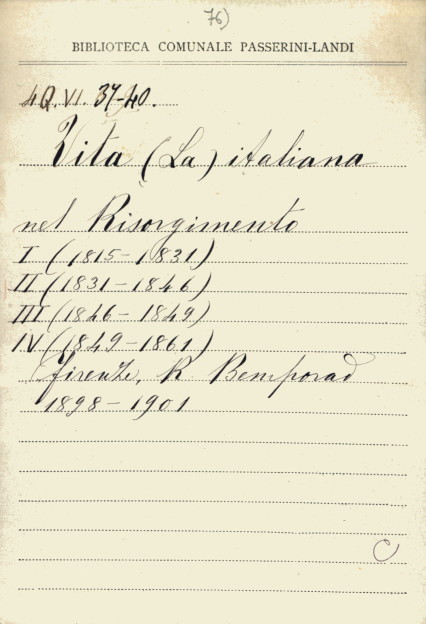 76)
BIBLIOTECA COMUNALE PASSERINI-LANDI
4Q.VI. 37-40.
Vita (La) italiana
nel Risorgimento
I (1815-1831)
II (1831-1846)
III (1846-1849)
IV (1849-1861)
Firenze, R Bemporad
1898-1901
C